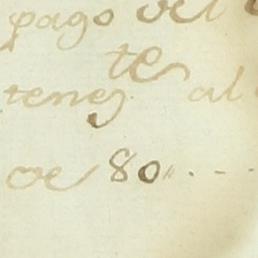 pago del
te
tenez al
de 80